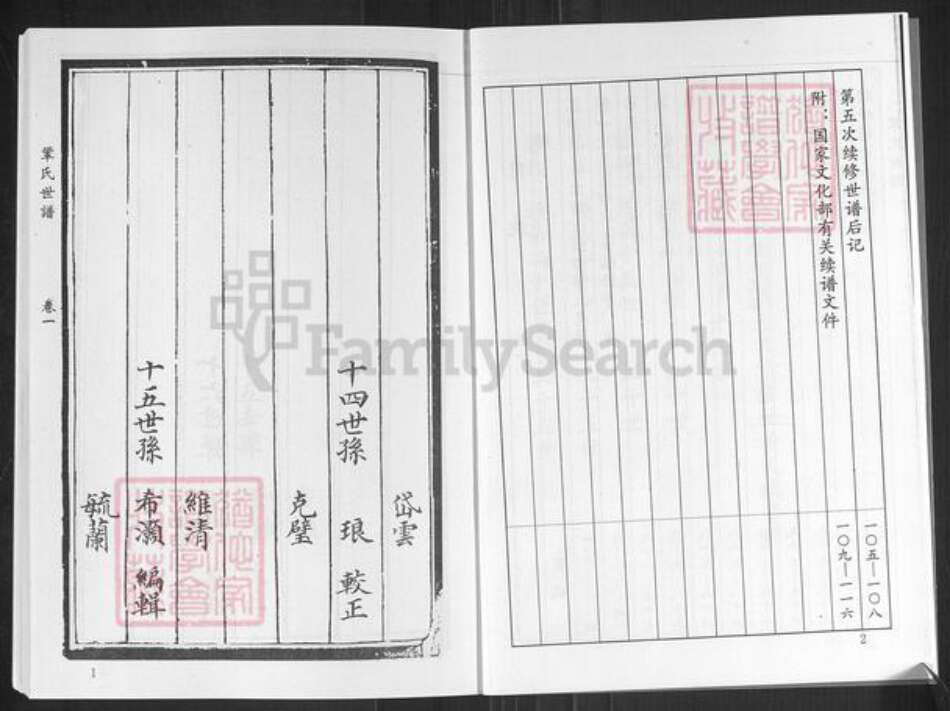 第五次续修世谱后记 一〇五—一〇八
附：国家文化部有关续谱文件 一〇九—一一六
2
岱雲
十四世孫 琅 較正
克璧
維清
十五世孫 希灝 編輯
毓蘭
鞏氏世譜 卷一
1
FamilySearch